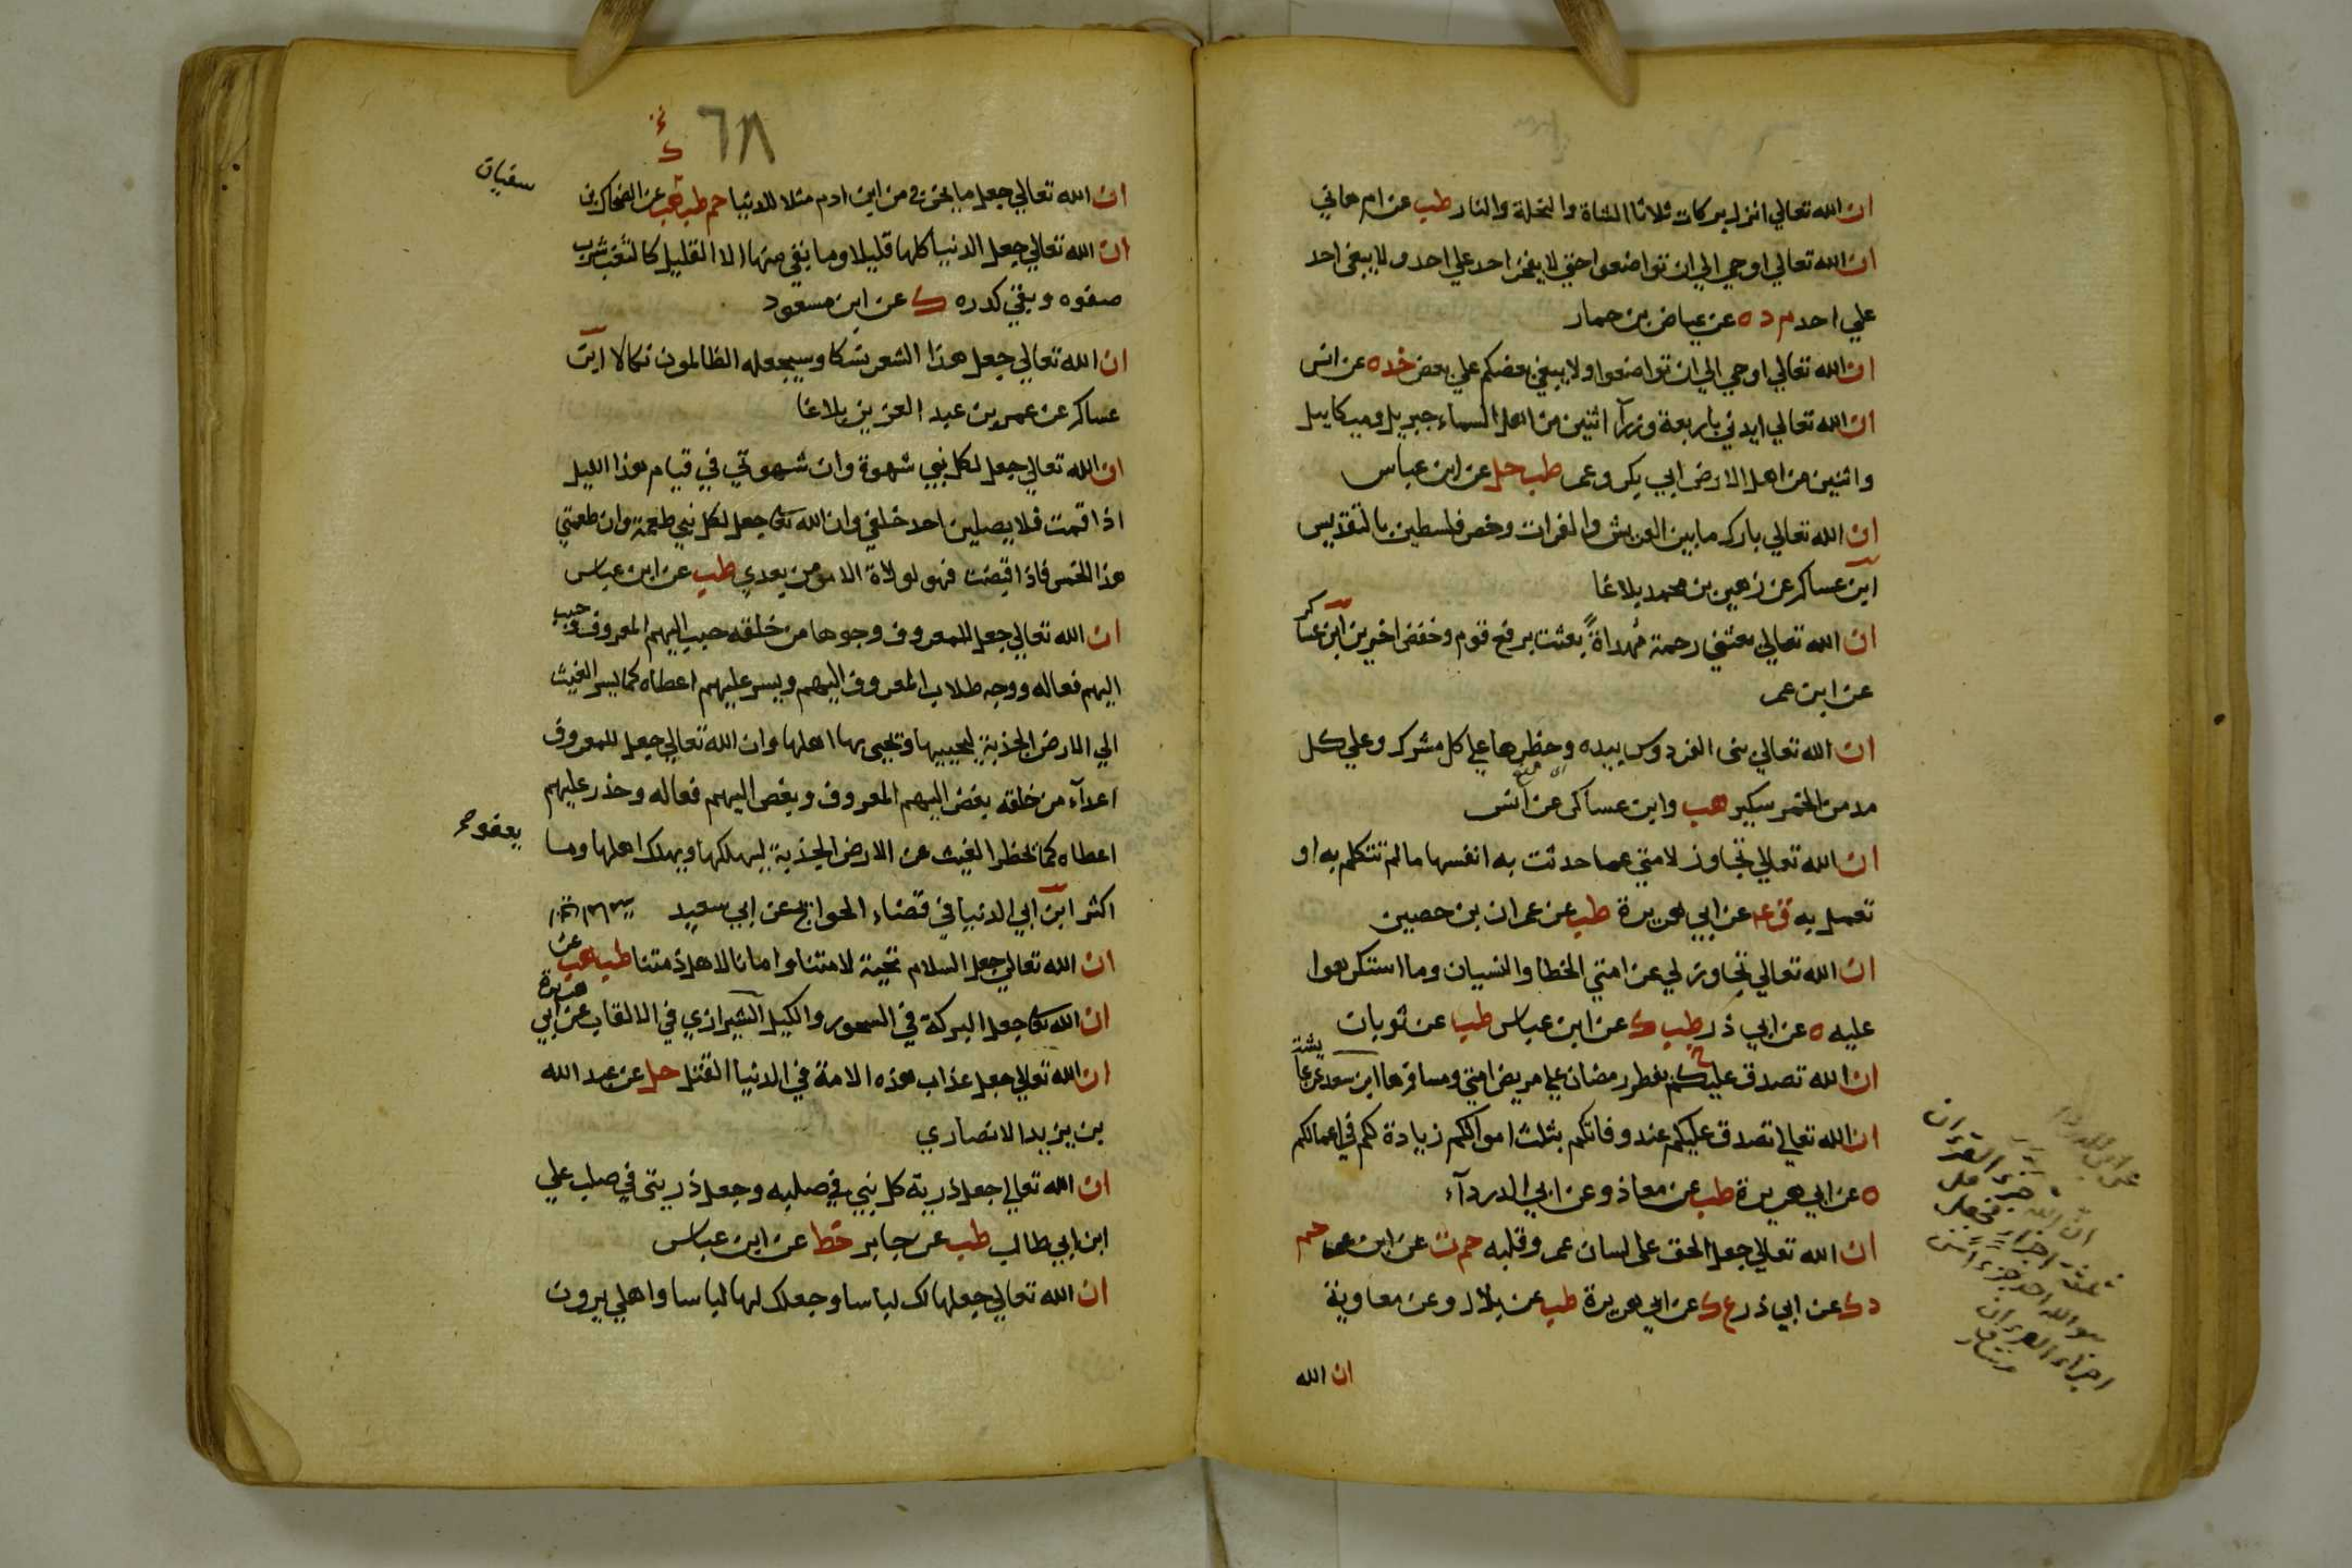 ان الله تعالي انزل بركات ثلاثا الشاة والنخلة والنار طب عن ام هاني
ان الله تعالي اوحي الي ان تواضعوا حتي لا يفخر احد علي احد ولا يبغي احد
علي احد م د ه عن عياض بن حمار
ان الله تعالي اوحي الي ان تواضعوا ولا يبغي بعضكم علي بعض خد ه عن انس
ان الله تعالي ايدني باربعة وزرآ اثنين من اهل السماء جبريل وميكاييل
واثنين من اهل الارض ابي بكر وعمر طب حل عن ابن عباس
ان الله تعالي بارك ما بين العريش والفرات وخص فلسطين بالتقديس
ابن عساكر عن زهير بن محمد بلاغا
ان الله تعالي بعثني رحمة مُهداةً بعثت برفع قوم وخفض اخرين ابن عساكر
عن ابن عمر
ان الله تعالي بنى الفردوس بيده وحظرها علي كل مشرك وعلي كل
مدمن الخمر سكير هب وابن عساكر عن انس
ان الله تعالي تجاوز لامتي عما حدثت به انفسها ما لم تتكلم به او
تعمل به ق ٤ عن ابي هريرة طب عن عمران بن حصين
ان الله تعالي تجاوز لي عن امتي الخطا والنسيان وما استكرهوا
عليه ه عن ابي ذر طب ك عن ابن عباس طب عن ثوبان
ان الله تصدق عليكم بفطر رمضان علي مريض امتي ومسافرها ابن سعد عن عايشة
ان الله تعالي تصدق عليكم عند وفاتكم بثلث اموالكم زيادة لكم في اعمالكم
ه عن ابي هريرة طب عن معاذ وعن ابي الدردآء
ان الله تعالي جعل الحق علي لسان عمر وقلبه حم ت عن ابن عمر حم
د ك عن ابي ذر ع ك عن ابي هريرة طب عن بلال وعن معاوية
ان الله
عن ابي الدرداء
ان الله جزء القران
ثلثة اجزاء فجعل
قل هو الله احد جزء من
اجزاء القران
٦٨
ان الله تعالي جعل ما يخرج من ابن ادم مثلا للدنيا حم طب هب عن الضحاك بن
سفيان
ان الله تعالي جعل الدنيا كلها قليلا وما بقي منها الا القليل كالثغب شرب
صفوه وبقي كدره ك عن ابن مسعود
ان الله تعالي جعل هذا الشعر نسكا وسيجعله الظالمون نكالا ابن
عساكر عن عمر بن عبد العزيز بلاغا
ان الله تعالي جعل لكل نبي شهوة وان شهوتي في قيام هذا الليل
اذا قمت فلا يصلين احد خلفي وان الله تعا جعل لكل نبي طعمة وان طعمتي
هذا الخمس فاذا قبضت فهو لولاة الامر من بعدي طب عن ابن عباس
ان الله تعالي جعل للمعروف وجوها من خلقه حبب اليهم المعروف وحبب
اليهم فعاله ووجه طلاب المعروف اليهم ويسر عليهم اعطاه كما يسر الغيث
الي الارض الجذبة ليحييها وتحيى بها اهلها وان الله تعالي جعل للمعروف
اعدآء من خلقه بغض اليهم المعروف وبغض اليهم فعاله وحذر عليهم
اعطاه كما يحظر الغيث عن الارض الجذبة ليهلكها ويهلك اهلها وما
يعفو
اكثر ابن ابي الدنيا في قضاء الحوائج عن ابي سعيد
ان الله تعالي جعل السلام تحية لامتنا وامانا لاهل ذمتنا طب هب عن
ان الله تعا جعل البركة في السحور والكيل الشيرازي في الالقاب عن ابي هريرة
ان الله تعالي جعل عذاب هذه الامة في الدنيا القتل حل عن عبد الله
بن يزيد الانصاري
ان الله تعالي جعل ذرية كل نبي في صلبه وجعل ذريتي في صلب علي
ابن ابي طالب طب عن جابر خط عن ابن عباس
ان الله تعالي جعلها لك لباسا وجعلك لها لباسا واهلي يرون